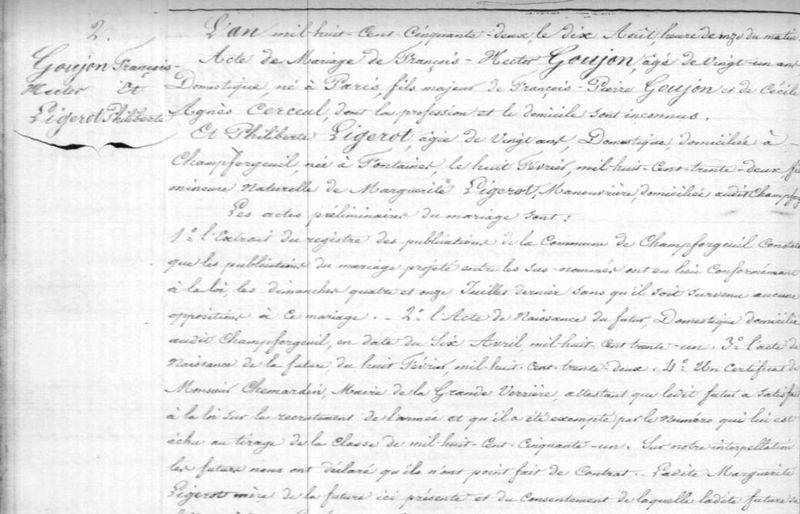 2.
Goujon François-
Hector Et
Ligerot Philberte
L'an mil-huit-Cent-Cinquante-deux, le dix Août, heure de onze du matin
Acte de Mariage de François-Hector Goujon, âgé de Vingt-un ans
Domestique né à Paris, fils majeur de François-Pierre Goujon et de Cécile
Agnès Cerceul, dont la profession et le domicile sont inconnus.
Et Philberte Ligerot, âgée de Vingt ans, Domestique, domiciliée à
Champforgeuil, née à Fontaines, le huit Février, mil-huit-Cent-trente-deux, fille
mineure Naturelle de Marguerite Ligerot, Manouvrière, domiciliée audit Champforg
Les actes préliminaires du mariage sont :
1.º l'Extrait du registre des publications de la Commune de Champforgeuil Constate
que les publications du mariage projeté entre les sus-nommés ont eu lieu Conformément
à la loi, les dimanches quatre et onze Juillet dernier sans qu'il soit survenu aucune
opposition à ce mariage. - 2.º l'Acte de Naissance du futur Domestique domicilié
audit Champforgeuil, en date du Six Avril, mil-huit-Cent trente-un. 3.º l'acte de
Naissance de la future, du huit Février, mil-huit-Cent-trente-deux. 4.º Un Certificat de
Monsieur Chemardin, Maire de la Grande Verrière, attestant que ledit futur a satisfait
à la loi sur le recrutement de l'armée et qu'il a été exempté par le Numéro qui lui est
échu au tirage de la Classe de mil-huit-Cent-Cinquante-un. Sur notre interpellation
les futurs nous ont déclaré qu'ils n'ont point fait de Contrat. Ladite Marguerite
Ligerot mère de la future ici présente et du Consentement de laquelle ladite future